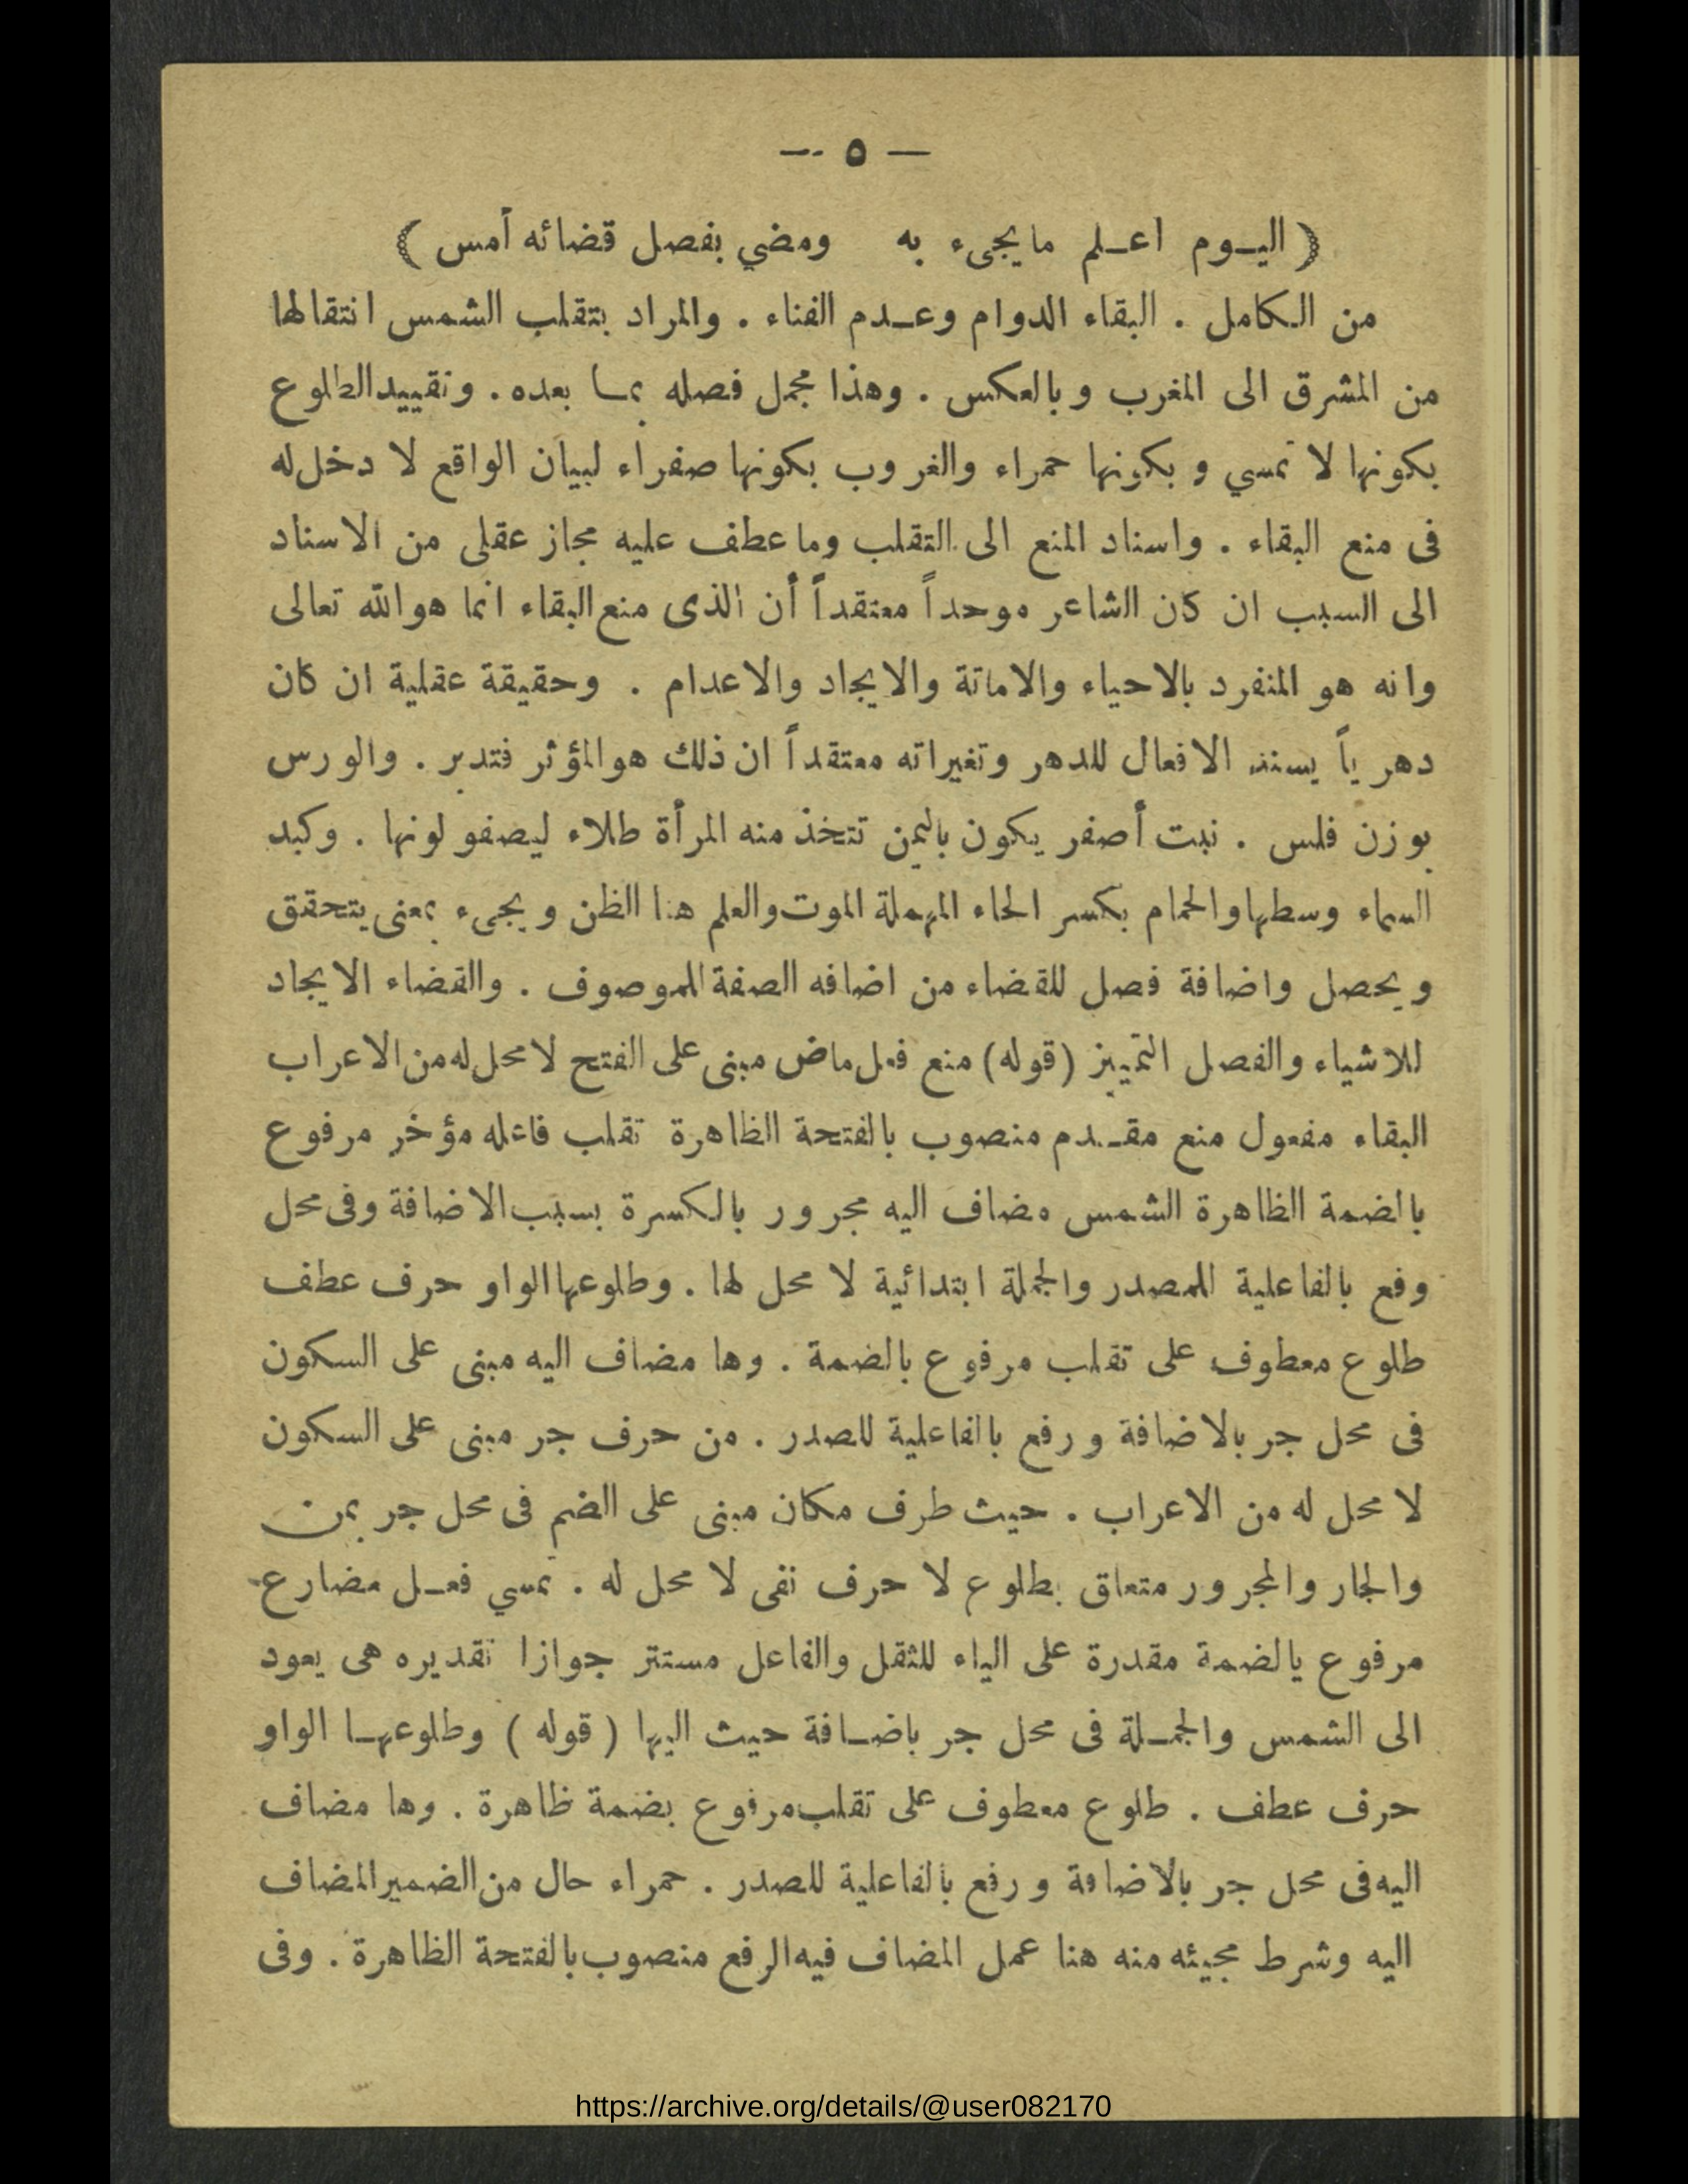 — ٥ —
﴿ اليـوم اعـلم ما يجىء به ومضي بفصل قضائه أمس ﴾
من الكامل . البقاء الدوام وعـدم الفناء . والمراد بتقلب الشمس انتقالها
من المشرق الى المغرب وبالعكس . وهذا مجمل فصله بمـا بعده . وتقييد الطلوع
بكونها لا تمسي وبكونها حمراء والغروب بكونها صفراء لبيان الواقع لا دخل له
فى منع البقاء . واسناد المنع الى التقلب وما عطف عليه مجاز عقلى من الاسناد
الى السبب ان كان الشاعر موحداً معتقداً أن الذى منع البقاء انما هو الله تعالى
وانه هو المنفرد بالاحياء والاماتة والايجاد والاعدام . وحقيقة عقلية ان كان
دهرياً يسند الافعال للدهر وتغيراته معتقداً ان ذلك هو المؤثر فتدبر . والورس
بوزن فلس . نبت أصفر يكون باليمن تتخذ منه المرأة طلاء ليصفو لونها . وكبد
السماء وسطها والحمام بكسر الحاء المهملة الموت والعلم هنا الظن ويجىء بمعنى يتحقق
ويحصل واضافة فصل للقضاء من اضافه الصفة للموصوف . والقضاء الايجاد
للاشياء والفصل التمييز (قوله) منع فعل ماض مبنى على الفتح لا محل له من الاعراب
البقاء مفعول منع مقـدم منصوب بالفتحة الظاهرة تقلب فاعله مؤخر مرفوع
بالضمة الظاهرة الشمس مضاف اليه مجرور بالكسرة بسبب الاضافة وفى محل
وفع بالفاعلية للمصدر والجملة ابتدائية لا محل لها . وطلوعها الواو حرف عطف
طلوع معطوف على تقلب مرفوع بالضمة . وها مضاف اليه مبنى على السكون
فى محل جر بالاضافة ورفع بالفاعلية للصدر . من حرف جر مبنى على السكون
لا محل له من الاعراب . حيث طرف مكان مبنى على الضم فى محل جر بمن
والجار والمجرور متعاق بطلوع لا حرف نفى لا محل له . تمسي فعـل مضارع
مرفوع يالضمة مقدرة على الياء للثقل والفاعل مستتر جوازا تقديره هى يعود
الى الشمس والجمـلة فى محل جر باضـافة حيث اليها ( قوله ) وطلوعهـا الواو
حرف عطف . طلوع معطوف على تقلب مرفوع بضمة ظاهرة . وها مضاف
اليه فى محل جر بالاضافة ورفع بالفاعلية للصدر . حمراء حال من الضمير المضاف
اليه وشرط مجيئه منه هنا عمل المضاف فيه الرفع منصوب بالفتحة الظاهرة . وفى
https://archive.org/details/@user082170